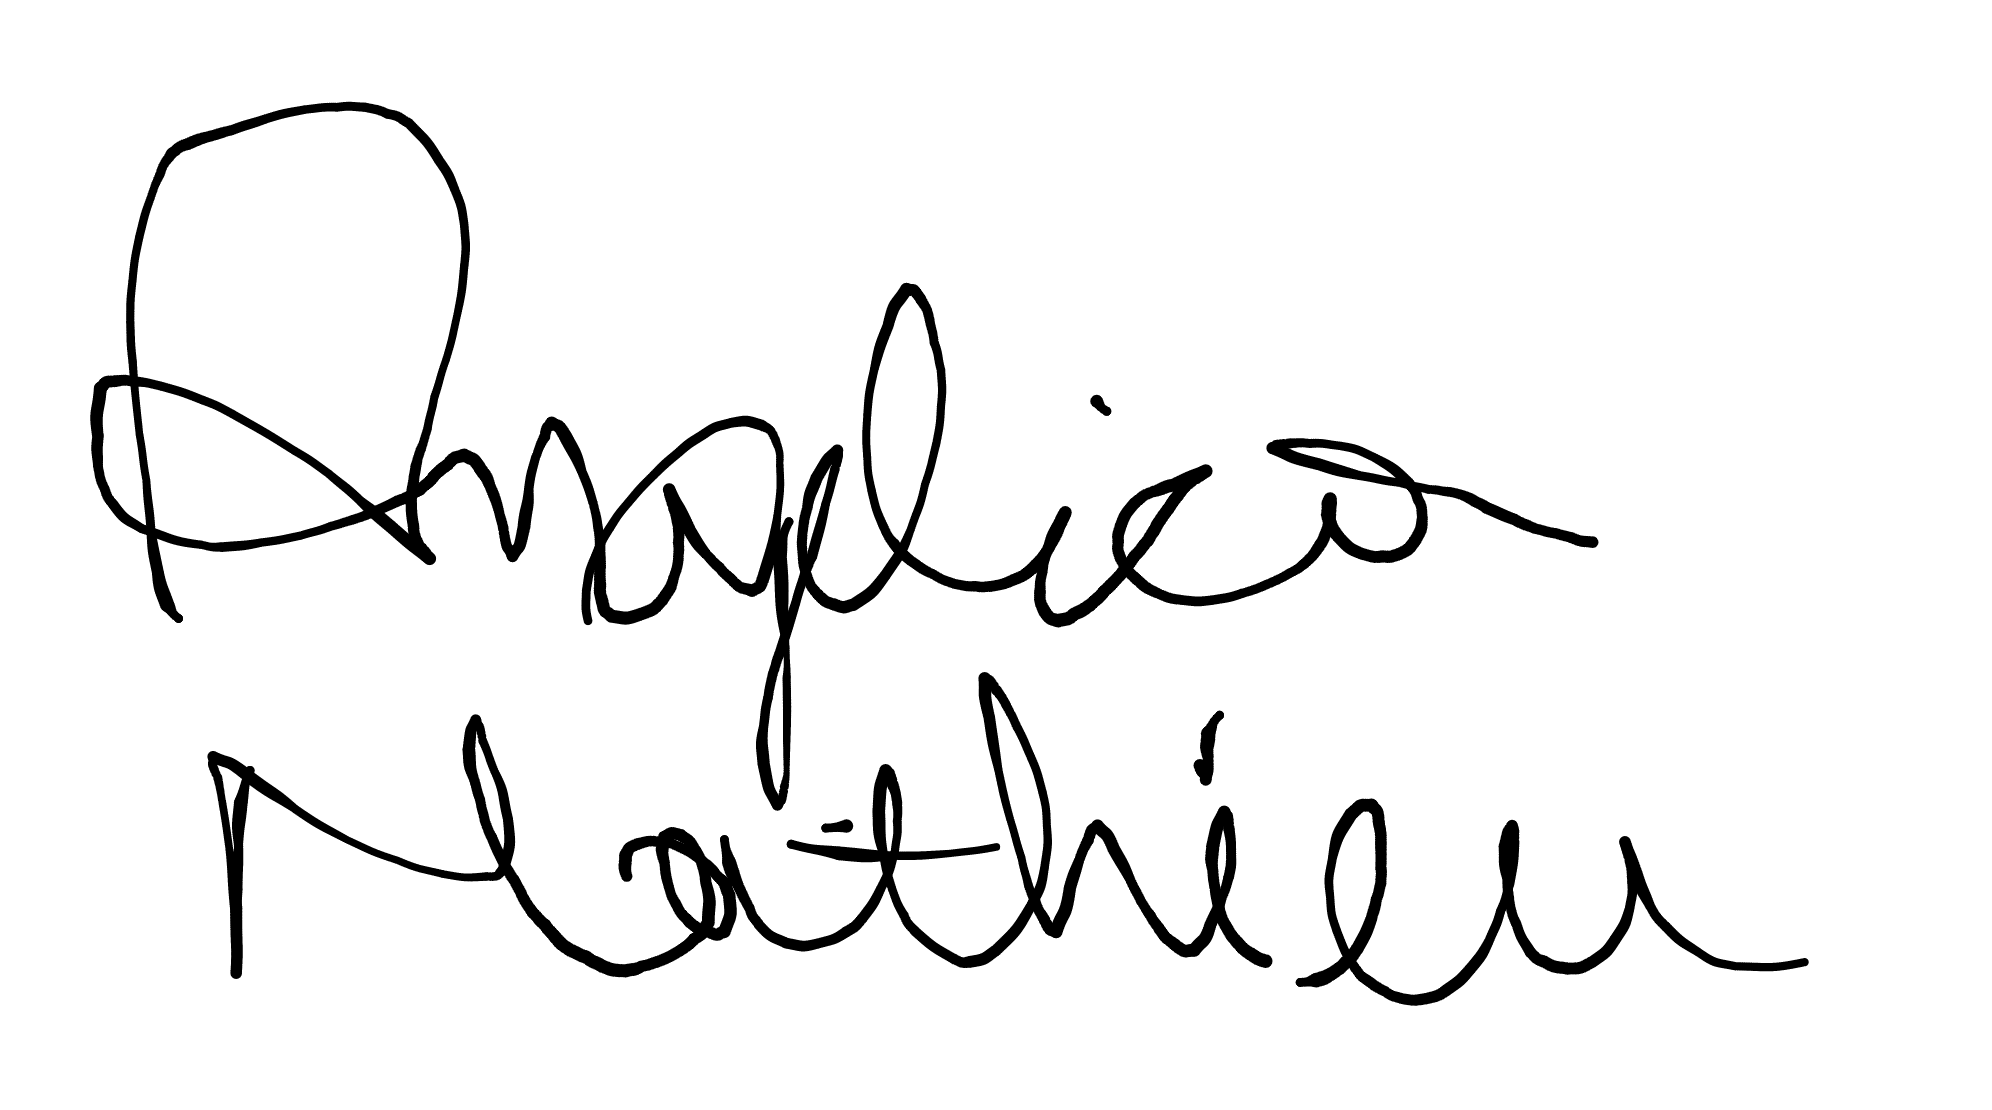 Angelica
Mathieu